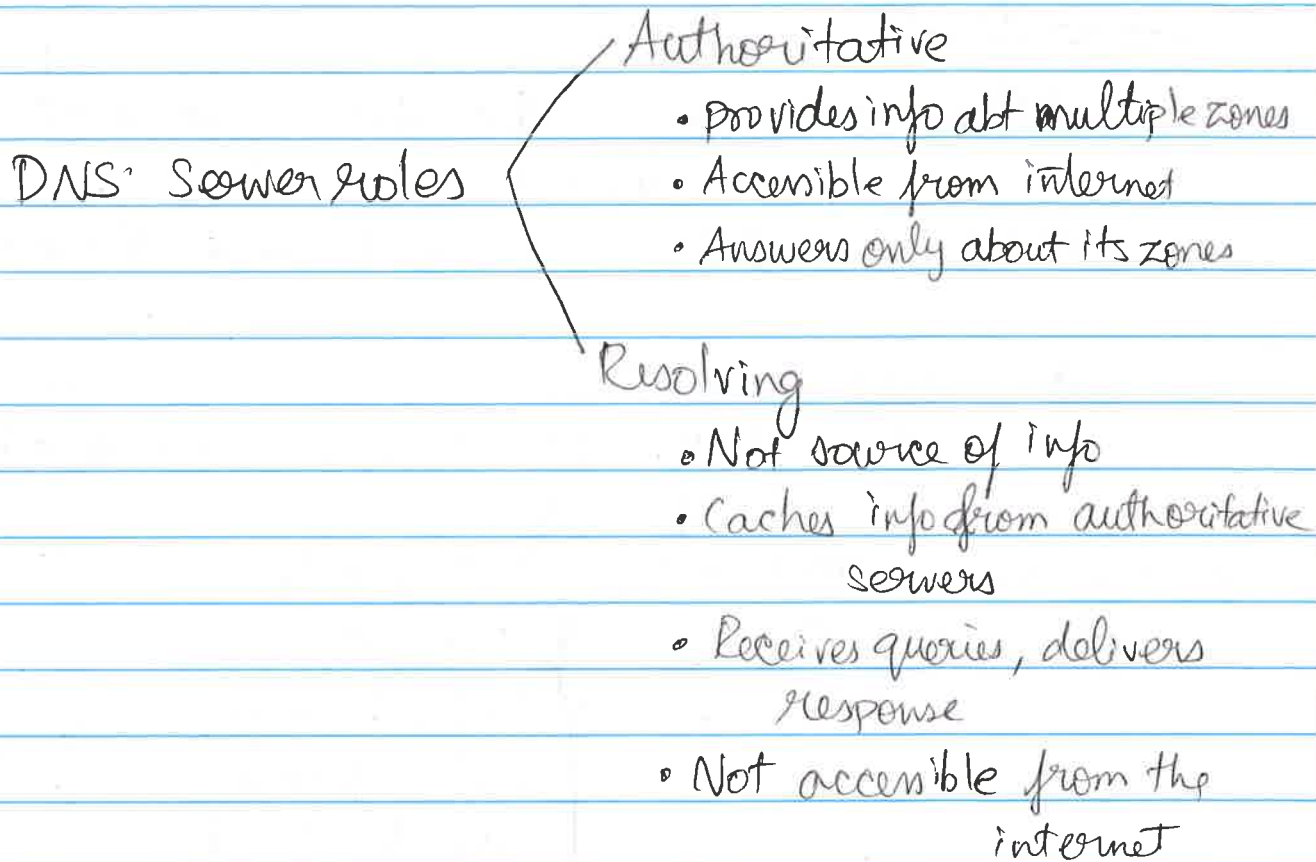 Authoritative
• provides info abt multiple zones
DNS Server roles
• Accessible from internet
• Answers only about its zones
Resolving
• Not source of info
• Caches info from authoritative
servers
• Receives queries, delivers
response
• Not accessible from the
internet